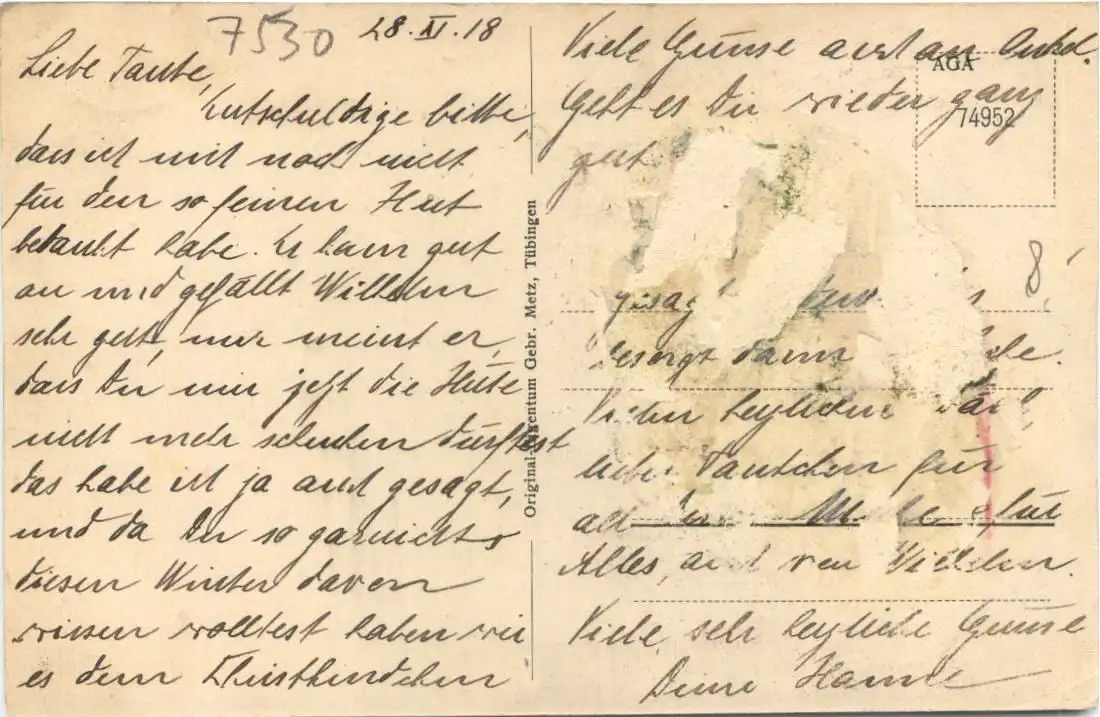 7530
28.XI.18
Liebe Tante,
Entschuldige bitte,
dass ich mich noch nicht
für den so feinen Hut
bedankt habe. Er kam gut
an und gefällt Wilhelm
sehr gut, nur meint er,
dass Du mir jetzt die Hüte
nicht mehr schenken dürftest
das habe ich ja auch gesagt,
und da Du so garnichts
diesen Winter davon
wissen wolltest haben wir
es dem Christkindchen
Original-Eigentum Gebr. Metz, Tübingen
Viele Grüsse auch an Onkel.
Geht es Dir wieder ganz
gut
AGA
74952
8
gesagt
besorgt dann
Vielen herzlichen
liebes Tantchen für
all Mühe, für
Alles, auch von Wilhelm.
Viele, sehr herzliche Grüsse
Deine